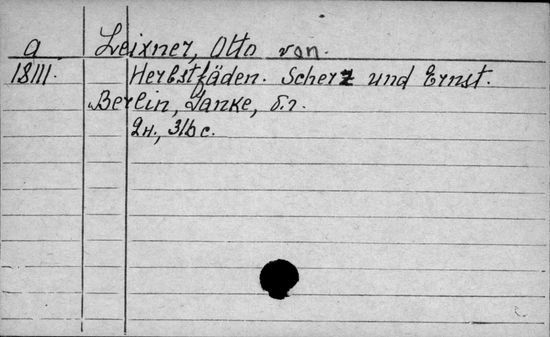 a Leixner, Otto von.
18111. Herbstfäden. Scherz und Ernst.
Berlin, Janke, б.г.
2н., 316 с.